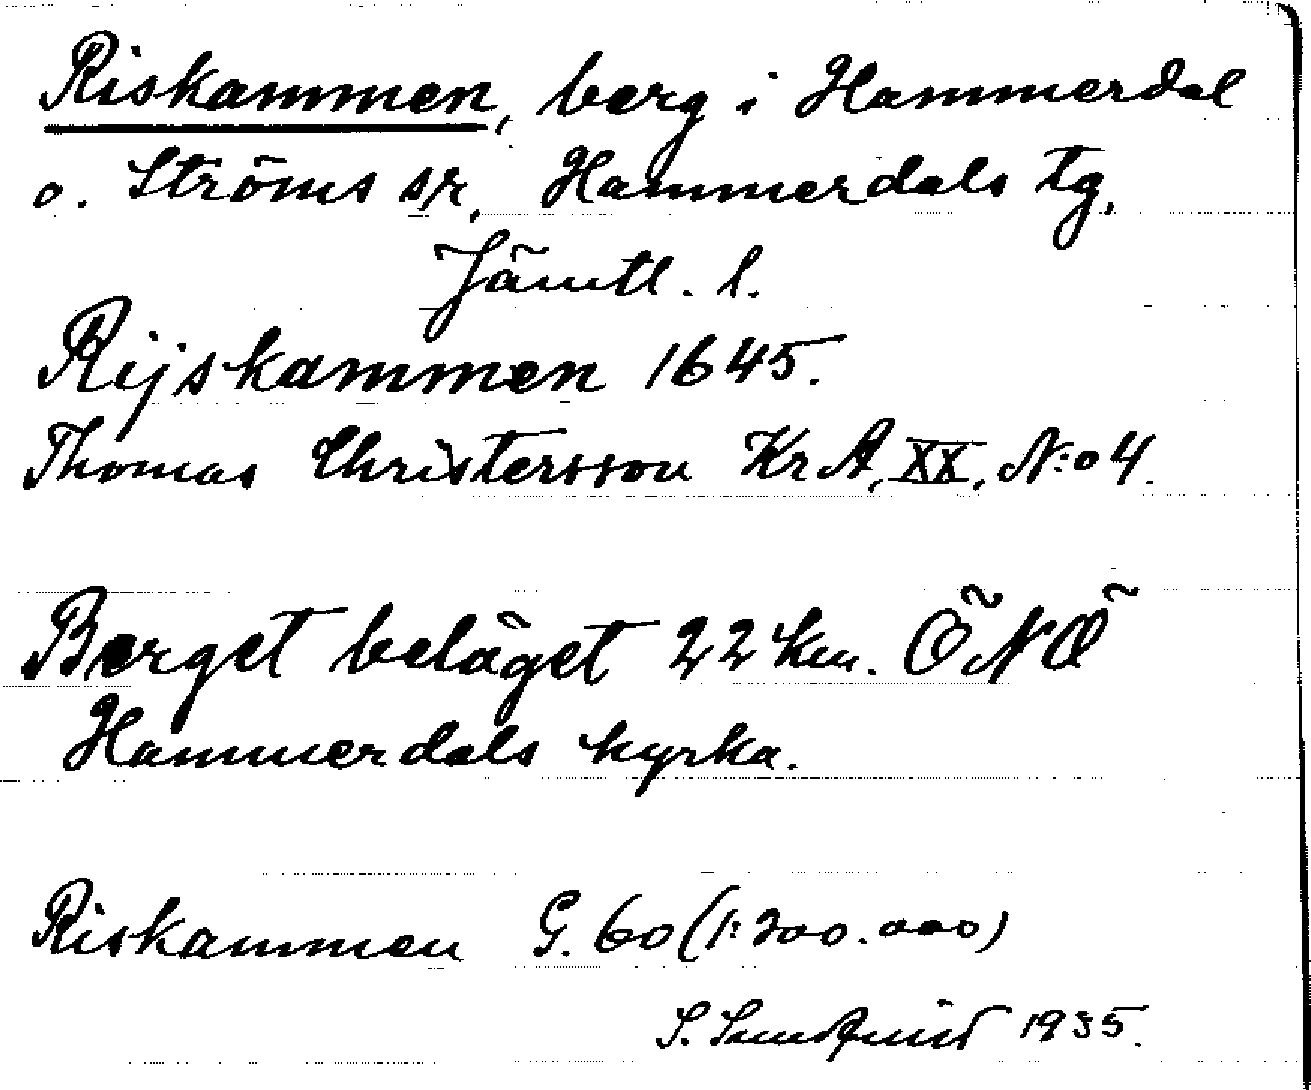 Riskammen, berg i Hammerdal
o. Ströms sr, Hammerdals tg,
Jämtl. l.
Rijskammen 1645.
Thomas Christersson KrA, XX, N:o 4.
Berget beläget 22 km. ÖNÖ
Hammerdals kyrka.
Riskammen G. 60 (1:200.000)
S. Sundquist 1935.